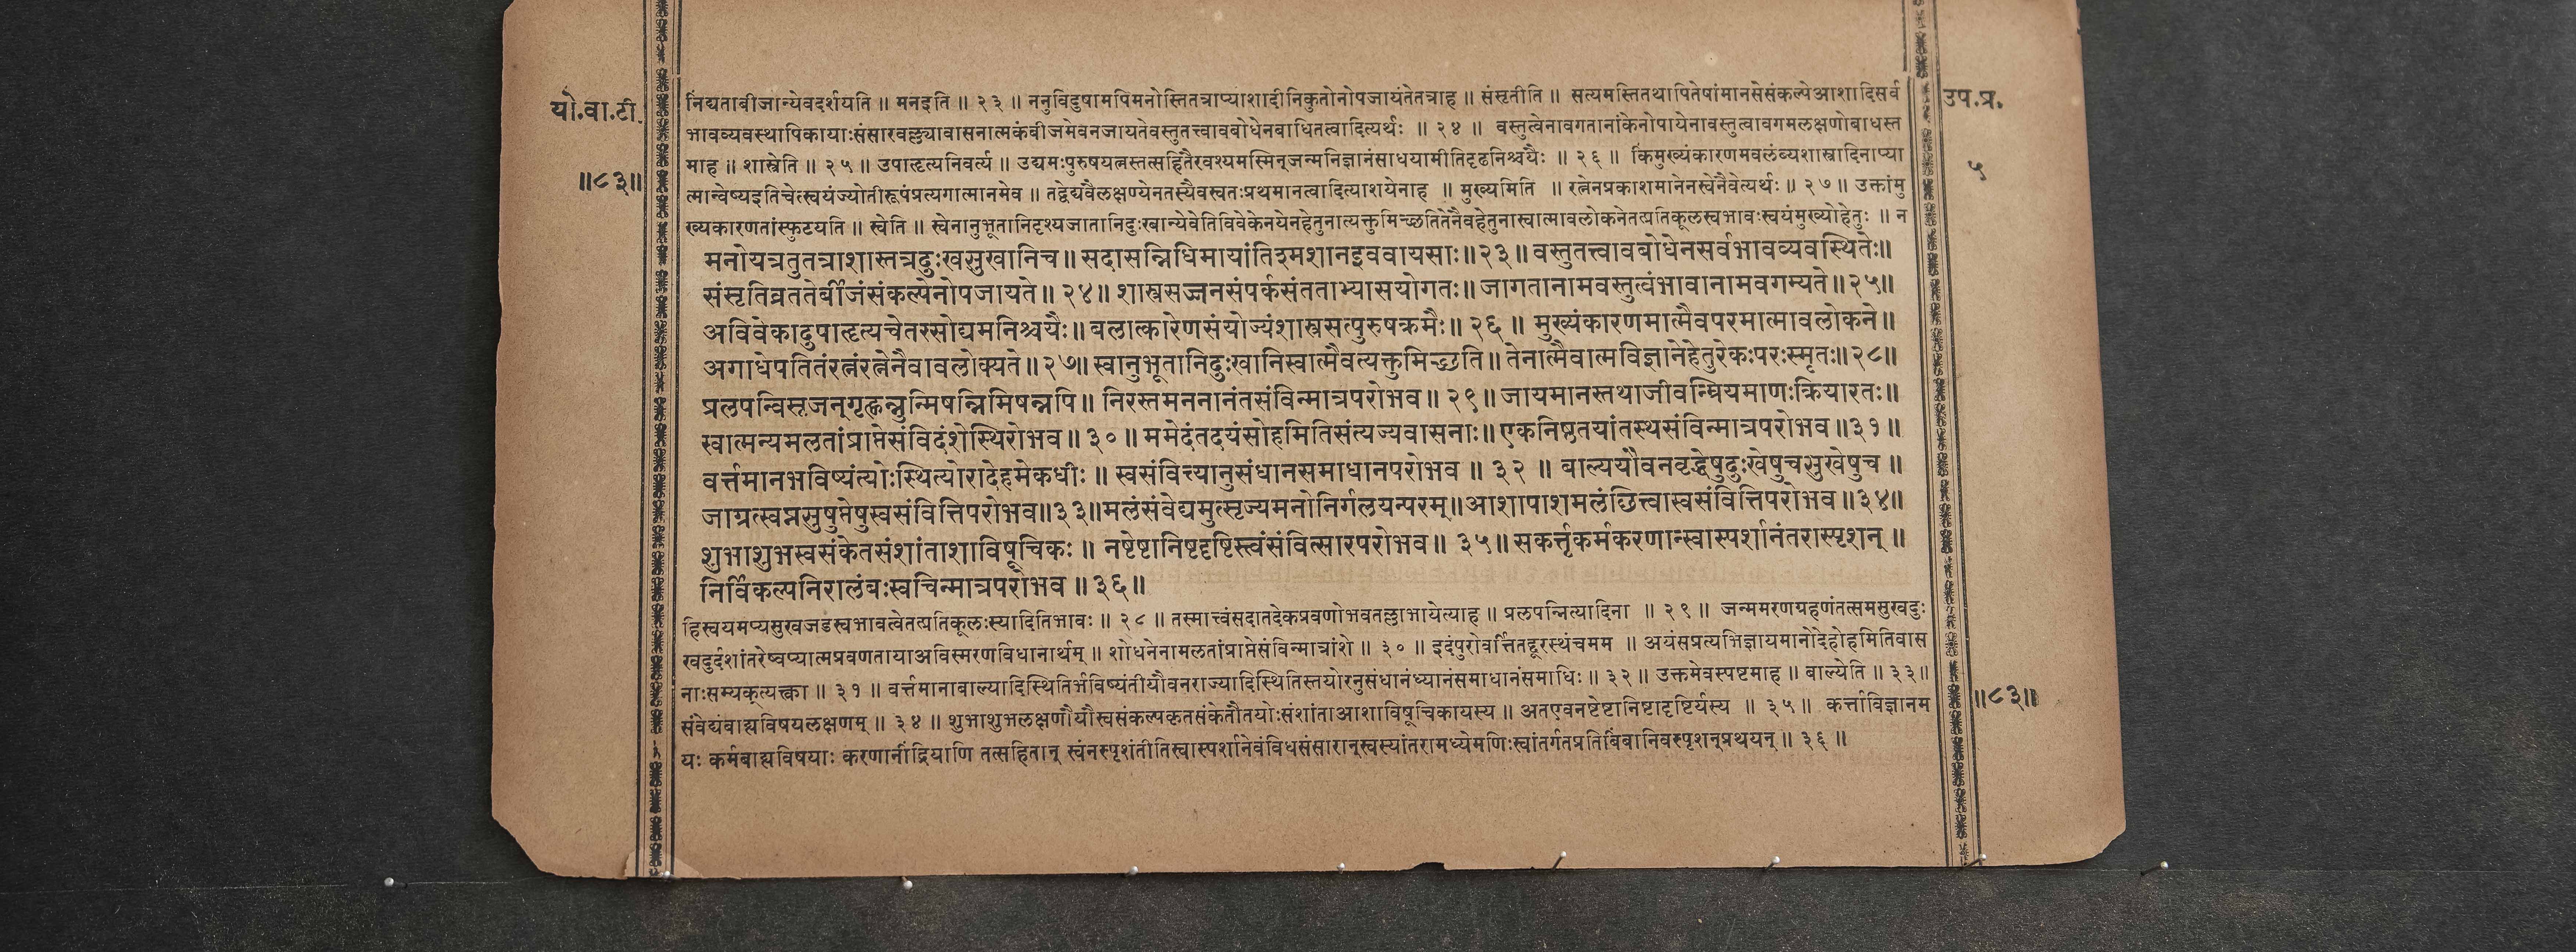 यो.वा.टी.
॥८३॥
निद्यताबीजान्येवदर्शयति ॥ मनइति ॥ २३ ॥ ननुविदुषामपिमनोस्तितत्राप्याशादीनिकुतोनोपजायंतेतत्राह ॥ संसृतीति ॥ सत्यमस्तितथापितेषांमानसेसंकल्पेआशादिसर्व
भावव्यवस्थापिकायाःसंसारवल्ल्यावासनात्मकंबीजमेवनजायतेवस्तुतत्त्वावबोधेनबाधितत्वादित्यर्थः ॥ २४ ॥ वस्तुत्वेनावगतानांकेनोपायेनावस्तुत्वावगमलक्षणोबाधस्त
माह ॥ शास्त्रेति ॥ २५ ॥ उपाहृत्यनिवर्त्य ॥ उद्यमःपुरुषयत्नस्तत्सहितैरवश्यमस्मिन्जन्मनिज्ञानंसाधयामीतिदृढनिश्चयैः ॥ २६ ॥ किमुख्यंकारणमवलंब्यशास्त्रादिनाप्या
त्मान्वेष्यइतिचेत्स्वयंज्योतीरूपंप्रत्यगात्मानमेव ॥ तद्वेद्यवैलक्षण्येनतस्यैवस्वतःप्रथमानत्वादित्याशयेनाह ॥ मुख्यमिति ॥ रत्नेनप्रकाशमानेनस्वेनैवेत्यर्थः ॥ २७ ॥ उक्तांमु
ख्यकारणतांस्फुटयति ॥ स्वेति ॥ स्वेनानुभूतानिदृश्यजातानिदुःखान्येवेतिविवेकेनयेनहेतुनात्यक्तुमिच्छतितेनैवहेतुनास्वात्मावलोकनेतत्प्रतिकूलस्वभावःस्वयंमुख्योहेतुः ॥ न
मनोयत्रतुतत्राशास्तत्रदुःखसुखानिच॥ सदासन्निधिमायांतिश्मशानइववायसाः॥२३॥ वस्तुतत्त्वावबोधेनसर्वभावव्यवस्थितेः॥
संसृतिव्रततेर्बीजंसंकल्पेनोपजायते॥ २४॥ शास्त्रसज्जनसंपर्कसंतताभ्यासयोगतः॥ जागतानामवस्तुत्वंभावानामवगम्यते॥२५॥
अविवेकादुपाहृत्यचेतरसोद्यमनिश्चयैः॥ बलात्कारेणसंयोज्यंशास्त्रसत्पुरुषक्रमैः॥ २६॥ मुख्यंकारणमात्मैवपरमात्मावलोकने॥
अगाधेपतितंरत्नंरत्नेनैवावलोक्यते॥ २७॥ स्वानुभूतानिदुःखानिस्वात्मैवत्यक्तुमिच्छति॥ तेनात्मैवात्मविज्ञानेहेतुरेकःपरःस्मृतः॥२८॥
प्रलपन्विसृजन्गृह्णन्नुन्मिषन्निमिषन्नपि॥ निरस्तमननानंतसंविन्मात्रपरोभव॥ २९॥ जायमानस्तथाजीवन्म्रियमाणःक्रियारतः॥
स्वात्मन्यमलतांप्राप्तेसंविदंशेस्थिरोभव॥ ३०॥ ममेदंतदयंसोहमितिसंत्यज्यवासनाः॥ एकनिष्ठतयांतस्थसंविन्मात्रपरोभव॥३१॥
वर्त्तमानभविष्यंत्योःस्थित्योरादेहमेकधीः ॥ स्वसंवित्त्यानुसंधानसमाधानपरोभव ॥ ३२ ॥ बाल्ययौवनवृद्धेषुदुःखेषुचसुखेषुच ॥
जाग्रत्स्वप्नसुषुप्तेषुस्वसंवित्तिपरोभव॥३३॥मलंसंवेद्यमुत्सृज्यमनोनिर्गलयन्परम्॥आशापाशमलंछित्त्वास्वसंवित्तिपरोभव॥३४॥
शुभाशुभस्वसंकेतसंशांताशाविषूचिकः ॥ नष्टेष्टानिष्टदृष्टिस्त्वंसंवित्सारपरोभव॥ ३५॥ सकर्त्तृकर्मकरणान्स्वास्पर्शानंतरास्पृशन् ॥
निर्विकल्पनिरालंबःस्वचिन्मात्रपरोभव ॥३६॥
हिस्वयमप्यसुखजडस्वभावत्वेतत्प्रतिकूलःस्यादितिभावः ॥ २८ ॥ तस्मात्त्वंसदातदेकप्रवणोभवतल्लाभायेत्याह ॥ प्रलपन्नित्यादिना ॥ २९ ॥ जन्ममरणग्रहणंतत्समसुखदुः
खदुर्दशांतरेष्वप्यात्मप्रवणतायाअविस्मरणविधानार्थम् ॥ शोधनेनामलतांप्राप्तेसंविन्मात्रांशे ॥ ३० ॥ इदंपुरोवर्त्तितद्दूरस्थंचमम ॥ अयंसप्रत्यभिज्ञायमानोदेहोहमितिवास
नाःसम्यक्त्यक्त्वा ॥ ३१ ॥ वर्त्तमानाबाल्यादिस्थितिर्भविष्यंतीयौवनराज्यादिस्थितिस्तयोरनुसंधानंध्यानंसमाधानंसमाधिः ॥ ३२ ॥ उक्तमेवस्पष्टमाह ॥ बाल्येति ॥ ३३॥
संवेद्यंबाह्यविषयलक्षणम् ॥ ३४ ॥ शुभाशुभलक्षणौयौस्वसंकल्पकृतसंकेतौतयोःसंशांताआशाविषूचिकायस्य ॥ अतएवनष्टेष्टानिष्टादृष्टिर्यस्य ॥ ३५ ॥ कर्त्ताविज्ञानम
यः कर्मबाह्यविषयाः करणानींद्रियाणि तत्सहितान् स्वंनस्पृशंतीतिस्वास्पर्शानेवंविधसंसारान्स्वस्यांतरामध्येमणिःस्वांतर्गतप्रतिबिंबानिवस्पृशन्प्रथयन् ॥ ३६ ॥
उप.प्र.
५
॥८३॥